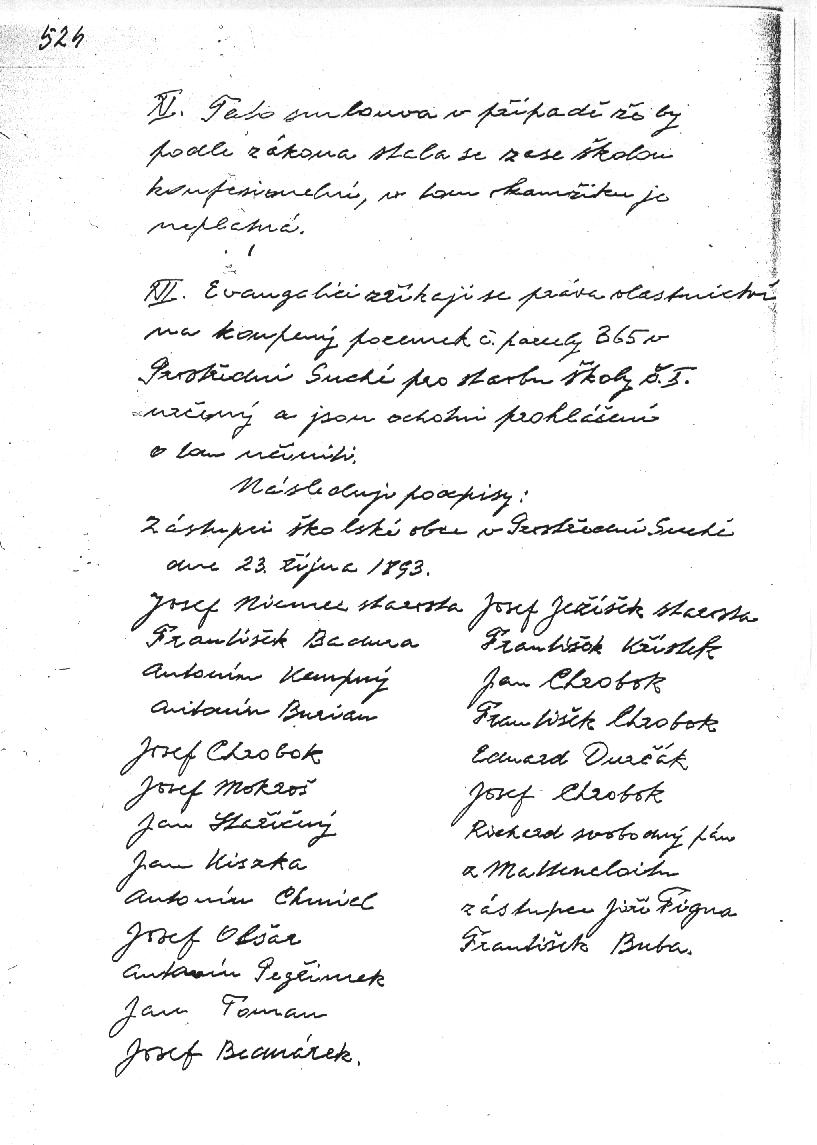 524
XI. Tato smlouva v případě že by
podle zákona stala se zase školou
konfesionelní, v tom okamžiku je
neplatná.
XII. Evangelíci zříkají se práva vlastnictví
na koupený pozemek č. parcely 365 v
Prostřední Suché pro stavbu školy č. I.
určený a jsou ochotni prohlášení
o tom učiniti.
Následují podpisy:
Zástupci školské obce v Prostřední Suché
dne 23. října 1893.
Josef Niemec starosta
František Badura
Antonín Kempný
Antonín Burian
Josef Chrobok
Josef Mokroš
Jan Stařičný
Jan Kiszka
Antonín Chmiel
Josef Olšar
Antonín
Jan Toman
Josef Bednárek.
Josef Ježíšek starosta
František Křístek
Jan Chrobok
František Chrobok
Eduard Durčák
Josef Chrobok
Richard svobodný pán
z Mattencloitu
zástupce Jiří Figna
František Buba.